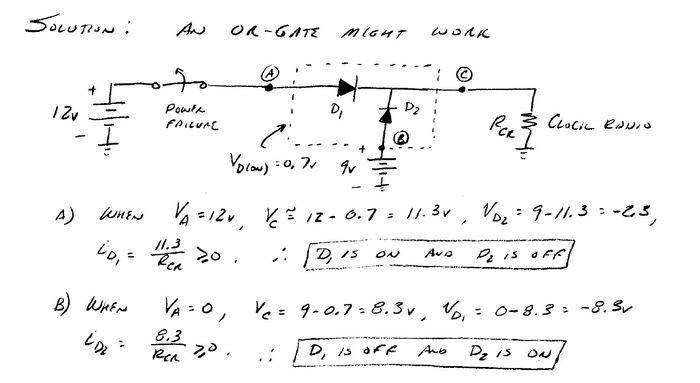 SOLUTION: AN OR-GATE MIGHT WORK
A C
+ D1 D2
12V POWER FAILURE RCR CLOCK RADIO
- VD(ON) = 0.7V + B
9V
-
A) WHEN VA = 12V, VC ≅ 12 - 0.7 = 11.3V, VD2 = 9 - 11.3 = -2.3,
iD1 = 11.3/RCR ≥ 0. ∴ D1 IS ON AND D2 IS OFF
B) WHEN VA = 0, VC = 9 - 0.7 = 8.3V, VD1 = 0 - 8.3 = -8.3V
iD2 = 8.3/RCR ≥ 0. ∴ D1 IS OFF AND D2 IS ON